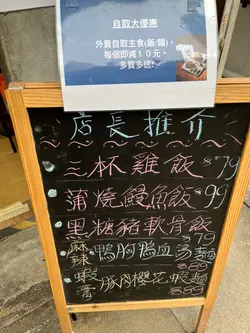 自取大優惠
外賣自取主食(飯/麵),
每個即減10元。
多買多送!
店長推介
三杯雞飯 $79
蒲燒鰻魚飯 $99
黑糖豬軟骨飯 $79
麻辣鴨胸鴨血湯麵
豚肉櫻花蝦麵